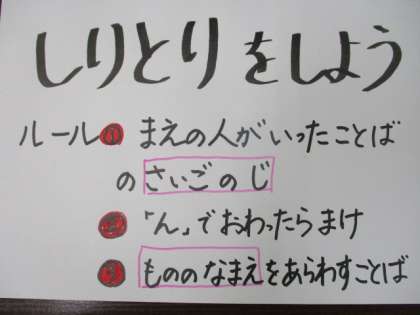 しりとりをしよう
ルール① まえの人がいったことば
のさいごのじ
② 「ん」でおわったらまけ
③ もののなまえをあらわすことば